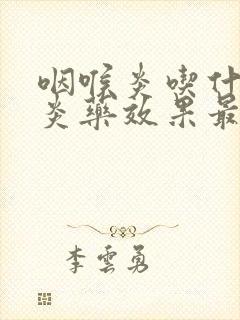 咽喉炎喫什
炎藥效果最
李雲勇